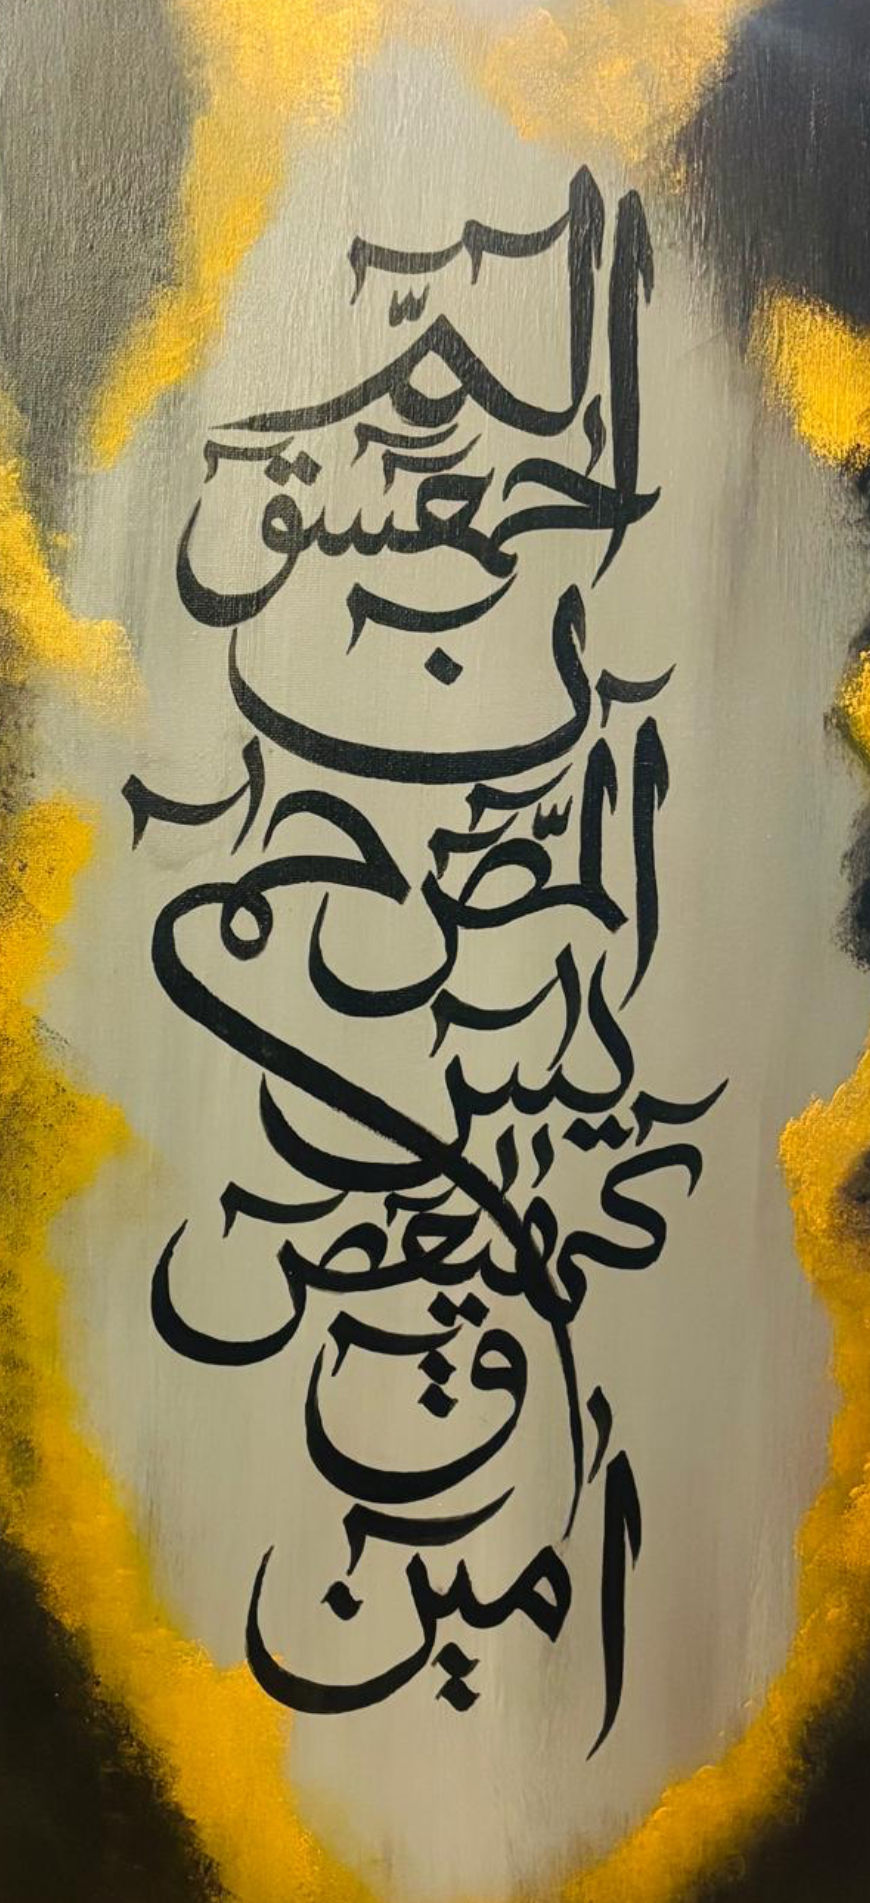 الٓمّٓ
حٰمٓعٓسٓقٓ
نٓ
الٓمّٓصٓ حٰمٓ
يٰسٓ
كٓهٰيٰعٓصٓ
قٓ
اٰمِيْن